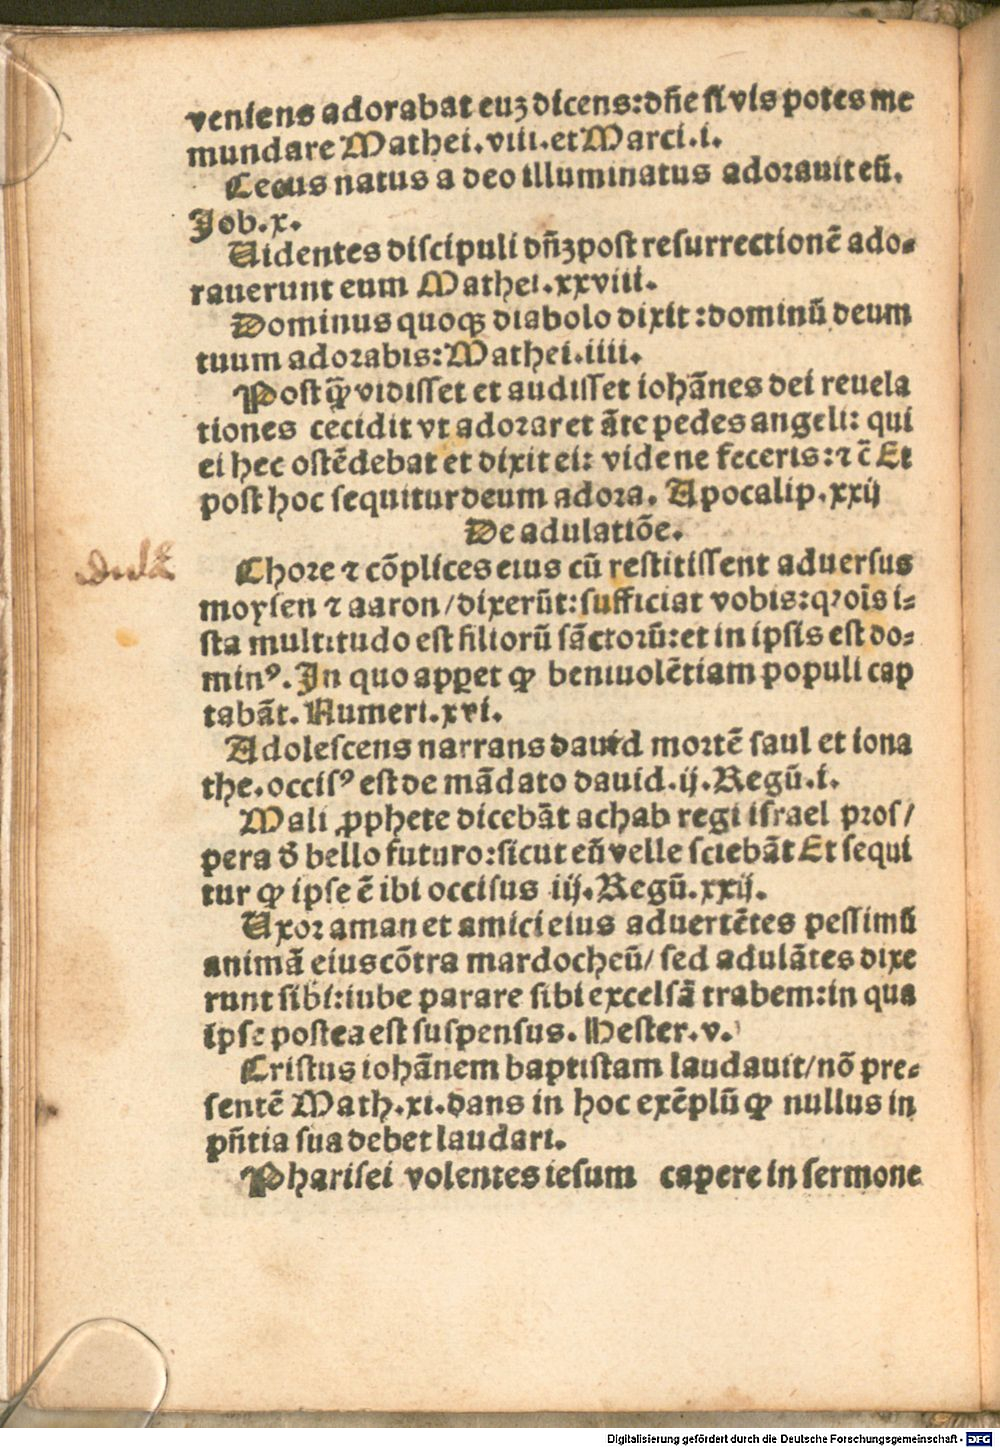 veniens adorabat euꝫ dicens: dñe si vis potes me
mundare Mathei. viii. et Marci. i.
Cecus natus a deo illuminatus adorauit eū.
Job. x.
Uidentes discipuli dñꝫ post resurrectionē ado⸗
rauerunt eum Mathei. xxviii.
Dominus quoqꝫ diabolo dixit: dominū deum
tuum adorabis: Mathei. iiii.
Postq̄ꝫ vidisset et audisset iohānes dei reuela
tiones cecidit vt adoraret āte pedes angeli: qui
ei hec ostēdebat et dixit ei: vide ne feceris: ⁊ c̄ Et
post hoc sequitur deum adora. Apocalip. xxij
De adulatiōe.
Chore ⁊ cōplices eius cū restitissent aduersus
moysen ⁊ aaron/ dixerūt: sufficiat vobis: qꝛ oīs i⸗
sta multitudo est filiorū sāctorū: et in ipsis est do⸗
minꝰ. In quo apꝑet ꝙ beniuolētiam populi cap
tabāt. Numeri. xvi.
Adolescens narrans dauid mortē saul et iona
the. occisꝰ est de mādato dauid. ij. Regū. i.
Mali ꝓphete dicebāt achab regi israel pros/
pera d̄ bello futuro: sicut eū velle sciebāt Et sequi
tur ꝙ ipse ē ibi occisus iij. Regū. xxij.
Uxor aman et amici eius aduertētes pessimū
animā eius cōtra mardocheū/ sed adulātes dixe
runt sibi: iube parare sibi excelsā trabem: in qua
ipse postea est suspensus. Hester. v.
Cristus iohānem baptistam laudauit/ nō pre⸗
sentē Math. xi. dans in hoc exēplū ꝙ nullus in
pn̄tia sua debet laudari.
Pharisei volentes iesum capere in sermone
Digitalisierung gefördert durch die Deutsche Forschungsgemeinschaft - DFG